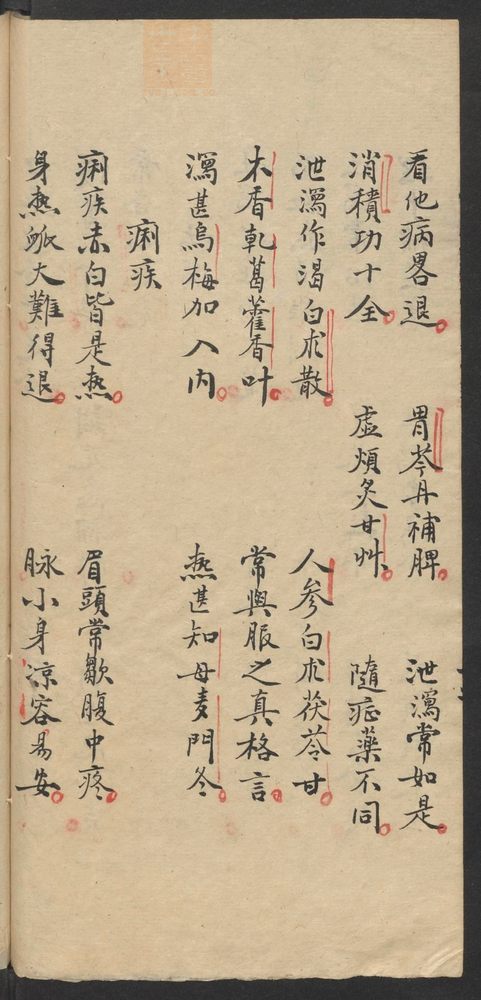 看他病畧退 胃苓丹補脾 泄瀉常如是
消積功十全 虛煩炙甘艸 隨症藥不同
泄瀉作渴白朮散 人參白朮茯苓甘
木香乾葛藿香叶 常與服之真格言
瀉甚烏梅加入內 热甚知母麦門冬
痢疾
痢疾赤白皆是热 眉頭常皺腹中疼
身热脈大難得退 脉小身凉容易安